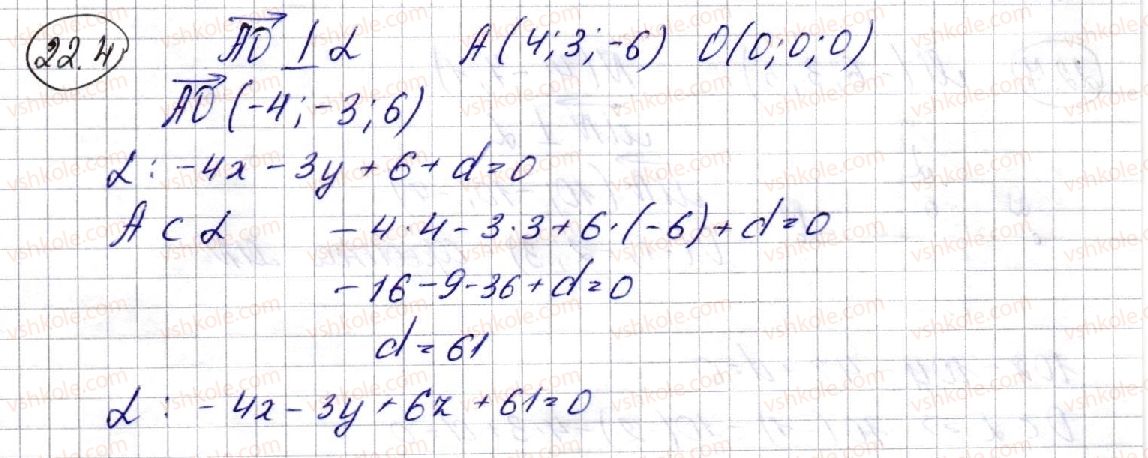 22.4 AO ⊥ α A(4;3;-6) O(0;0;0)
AO(-4;-3;6)
α: -4x-3y+6+d=0
A ⊂ α -4·4-3·3+6·(-6)+d=0
-16-9-36+d=0
d=61
α: -4x-3y+6z+61=0